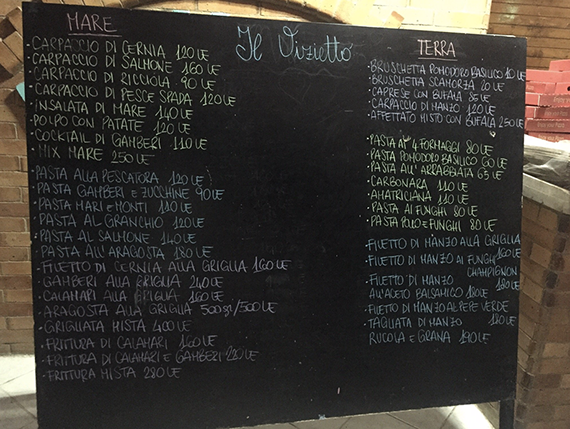 Il Vizietto
MARE
- CARPACCIO DI CERNIA 120 LE
- CARPACCIO DI SALMONE 160 LE
- CARPACCIO DI RICCIOLA 90 LE
- CARPACCIO DI PESCE SPADA 120 LE
- INSALATA DI MARE 140 LE
- POLPO CON PATATE 120 LE
- COCKTAIL DI GAMBERI 110 LE
- MIX MARE 250 LE
- PASTA ALLA PESCATORA 120 LE
- PASTA GAMBERI E ZUCCHINE 90 LE
- PASTA MARI E MONTI 110 LE
- PASTA AL GRANCHIO 120 LE
- PASTA AL SALMONE 140 LE
- PASTA ALL'ARAGOSTA 180 LE
- FILETTO DI CERNIA ALLA GRIGLIA 160 LE
- GAMBERI ALLA GRIGLIA 240 LE
- CALAMARI ALLA GRIGLIA 160 LE
- ARAGOSTA ALLA GRIGLIA 500gr/500 LE
- GRIGLIATA MISTA 400 LE
- FRITTURA DI CALAMARI 160 LE
- FRITTURA DI CALAMARI E GAMBERI 220 LE
- FRITTURA MISTA 280 LE
TERRA
- BRUSCHETTA POMODORO BASILICO 10 LE
- BRUSCHETTA SCAMORZA 20 LE
- CAPRESE CON BUFALA LE
- CARPACCIO DI MANZO 120 LE
- AFFETTATO MISTO CON BUFALA 250 LE
- PASTA AI 4 FORMAGGI 80 LE
- PASTA POMODORO BASILICO 60 LE
- PASTA ALL'ARRABBIATA 65 LE
- CARBONARA 110 LE
- AMATRICIANA 110 LE
- PASTA AI FUNGHI 80 LE
- PASTA POLLO E FUNGHI 80 LE
- FILETTO DI MANZO ALLA GRIGLIA
160 LE
- FILETTO DI MANZO AI FUNGHI
CHAMPIGNON
180 LE
- FILETTO DI MANZO
ALL'ACETO BALSAMICO 180 LE
- FILETTO DI MANZO AL PEPE VERDE
180 LE
- TAGLIATA DI MANZO
RUCOLA E GRANA 190 LE